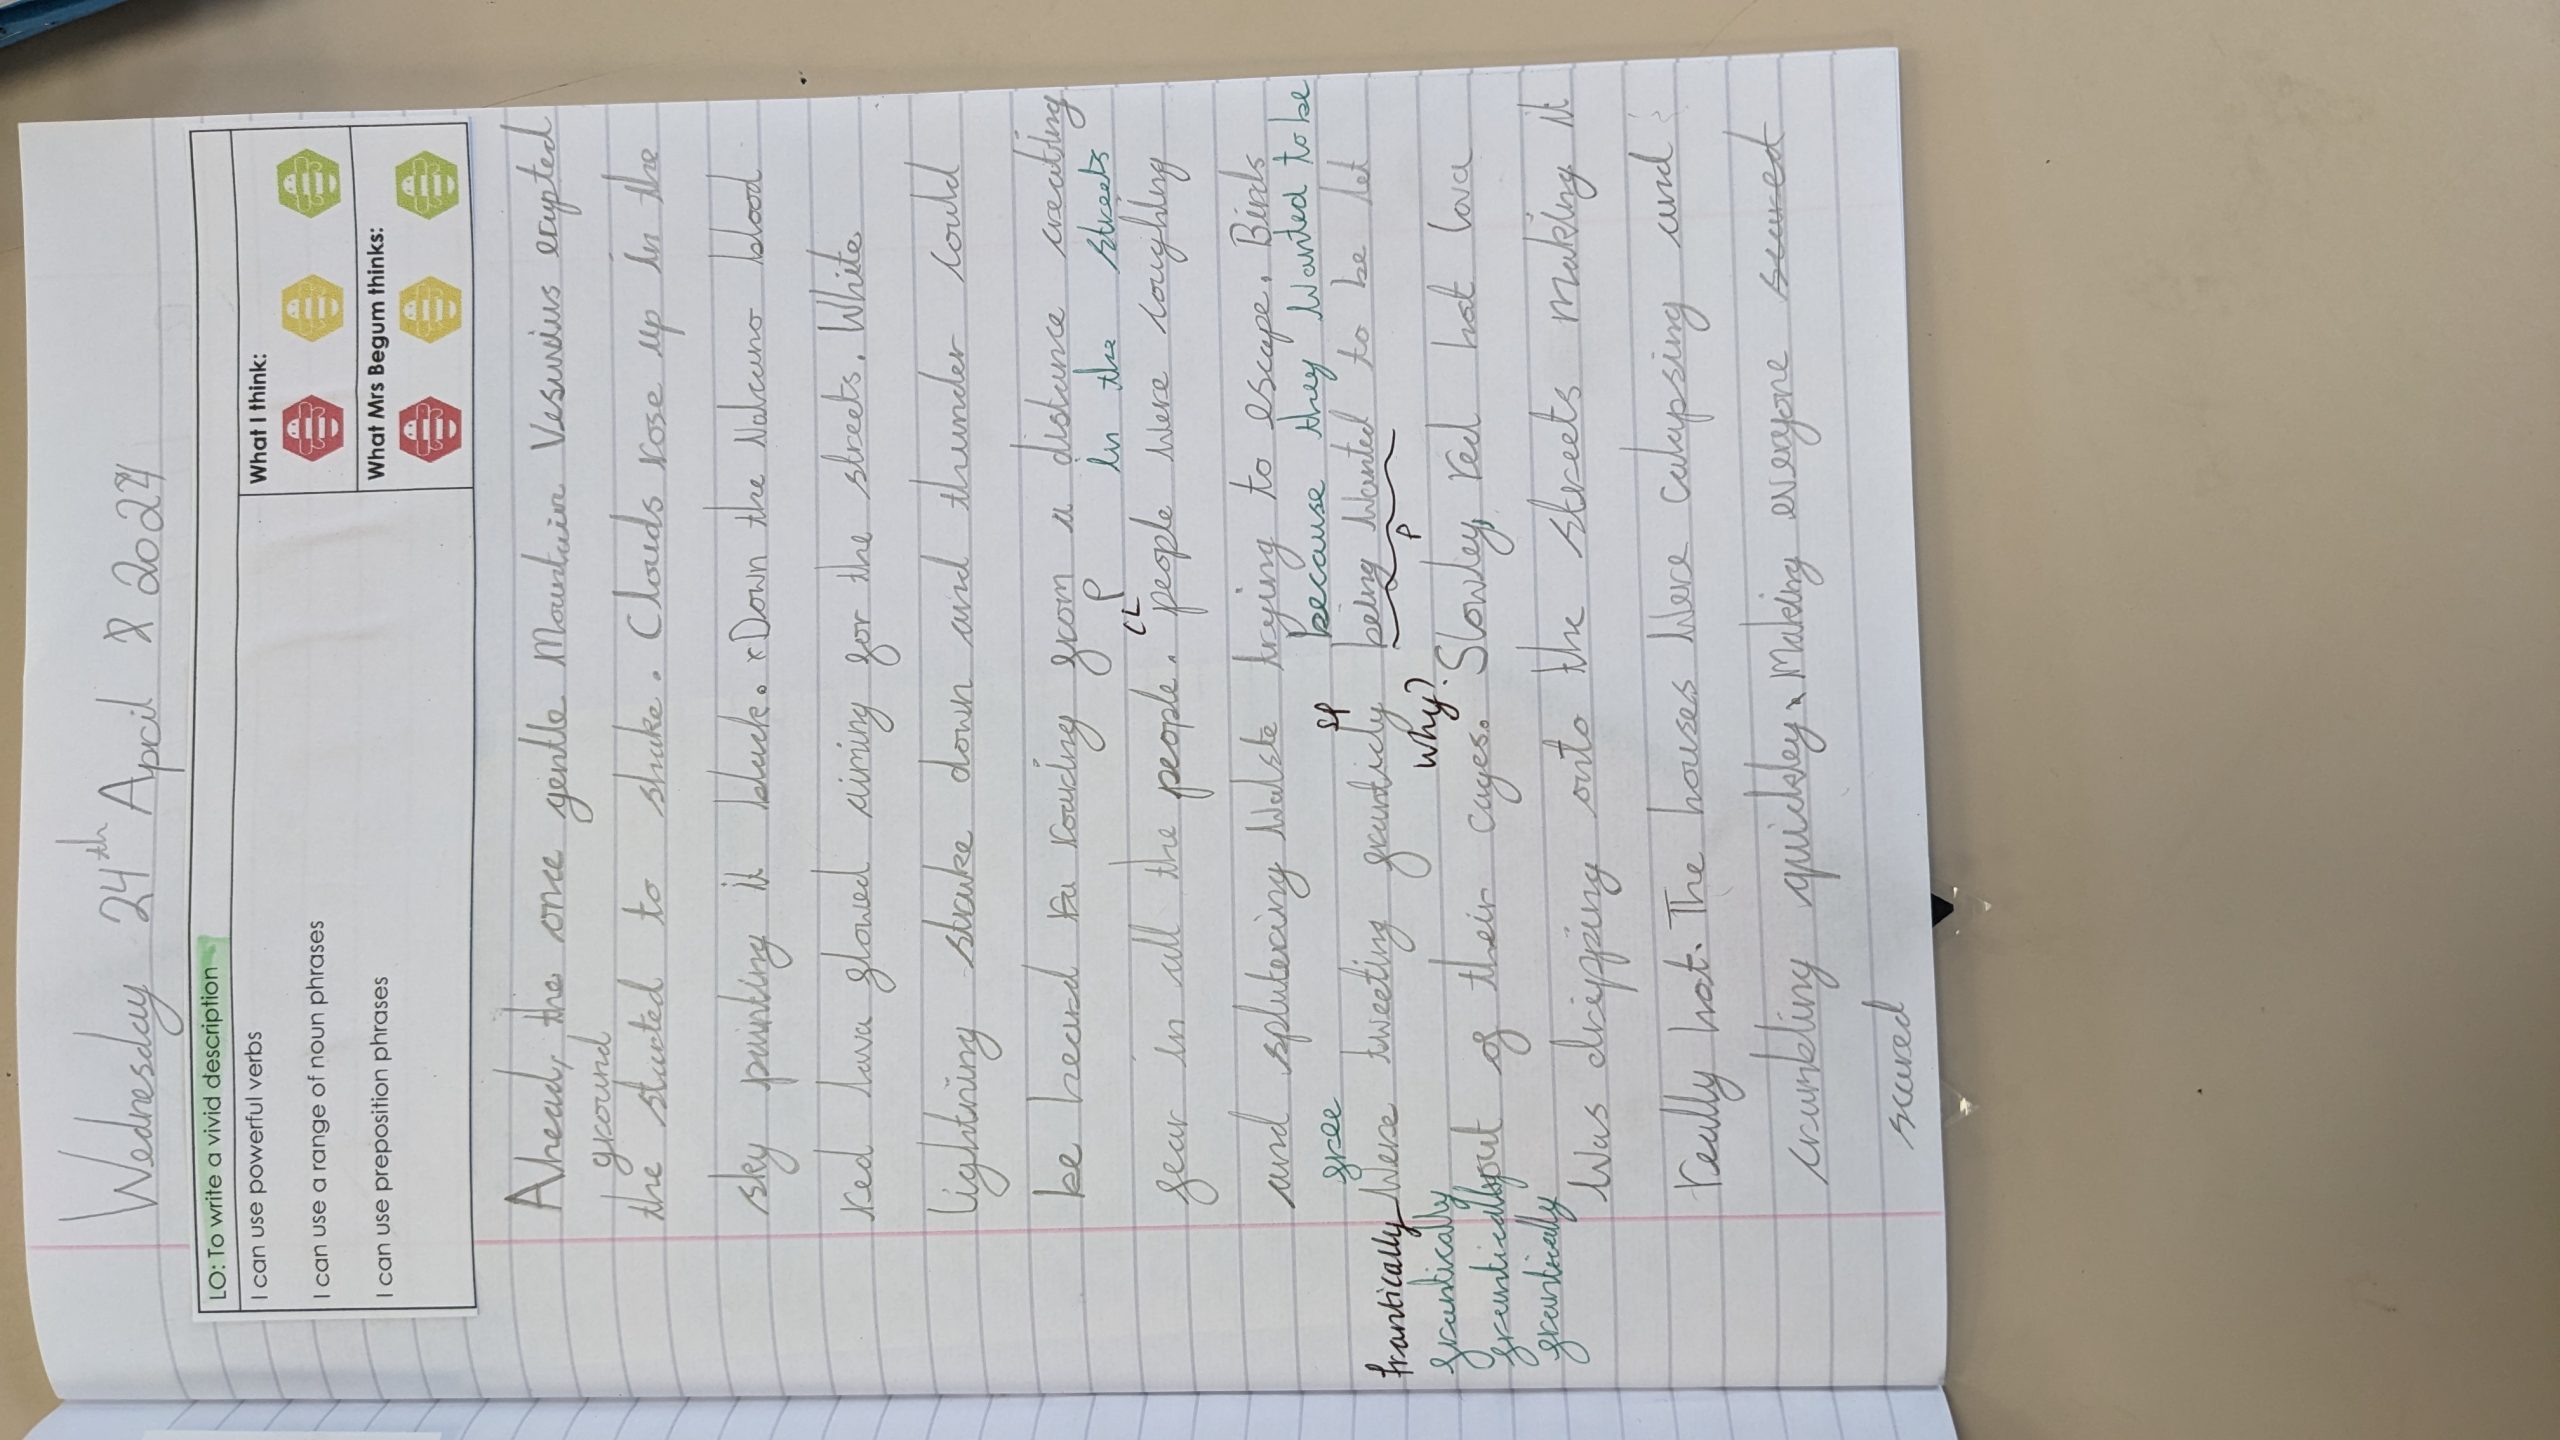 Wednesday 24th April 2024
LO: To write a vivid description
I can use powerful verbs
I can use a range of noun phrases
I can use preposition phrases
What I think:
What Mrs Begum thinks:
Ahead, the once gentle Mountain Vesuvius erupted
ground
the started to shake. Clouds rose up in the
sky painting it black. Down the Volcano blood
red lava glowed aiming for the streets. White
Lightning strake down and thunder could
be heard roaring from a distance creating
P in the streets
CL
fear in all the people. people were coughing
and spluttering waste trying to escape. Birds
free sp because they wanted to be
frantically were tweeting franticly being wanted to be let
frantically why? P
out of their cages. Slowley, red hot lava
frantically
frantically
was dripping onto the streets making it
really hot. The houses were calupsing and
crumbling quickley. Making everyone scared
scared